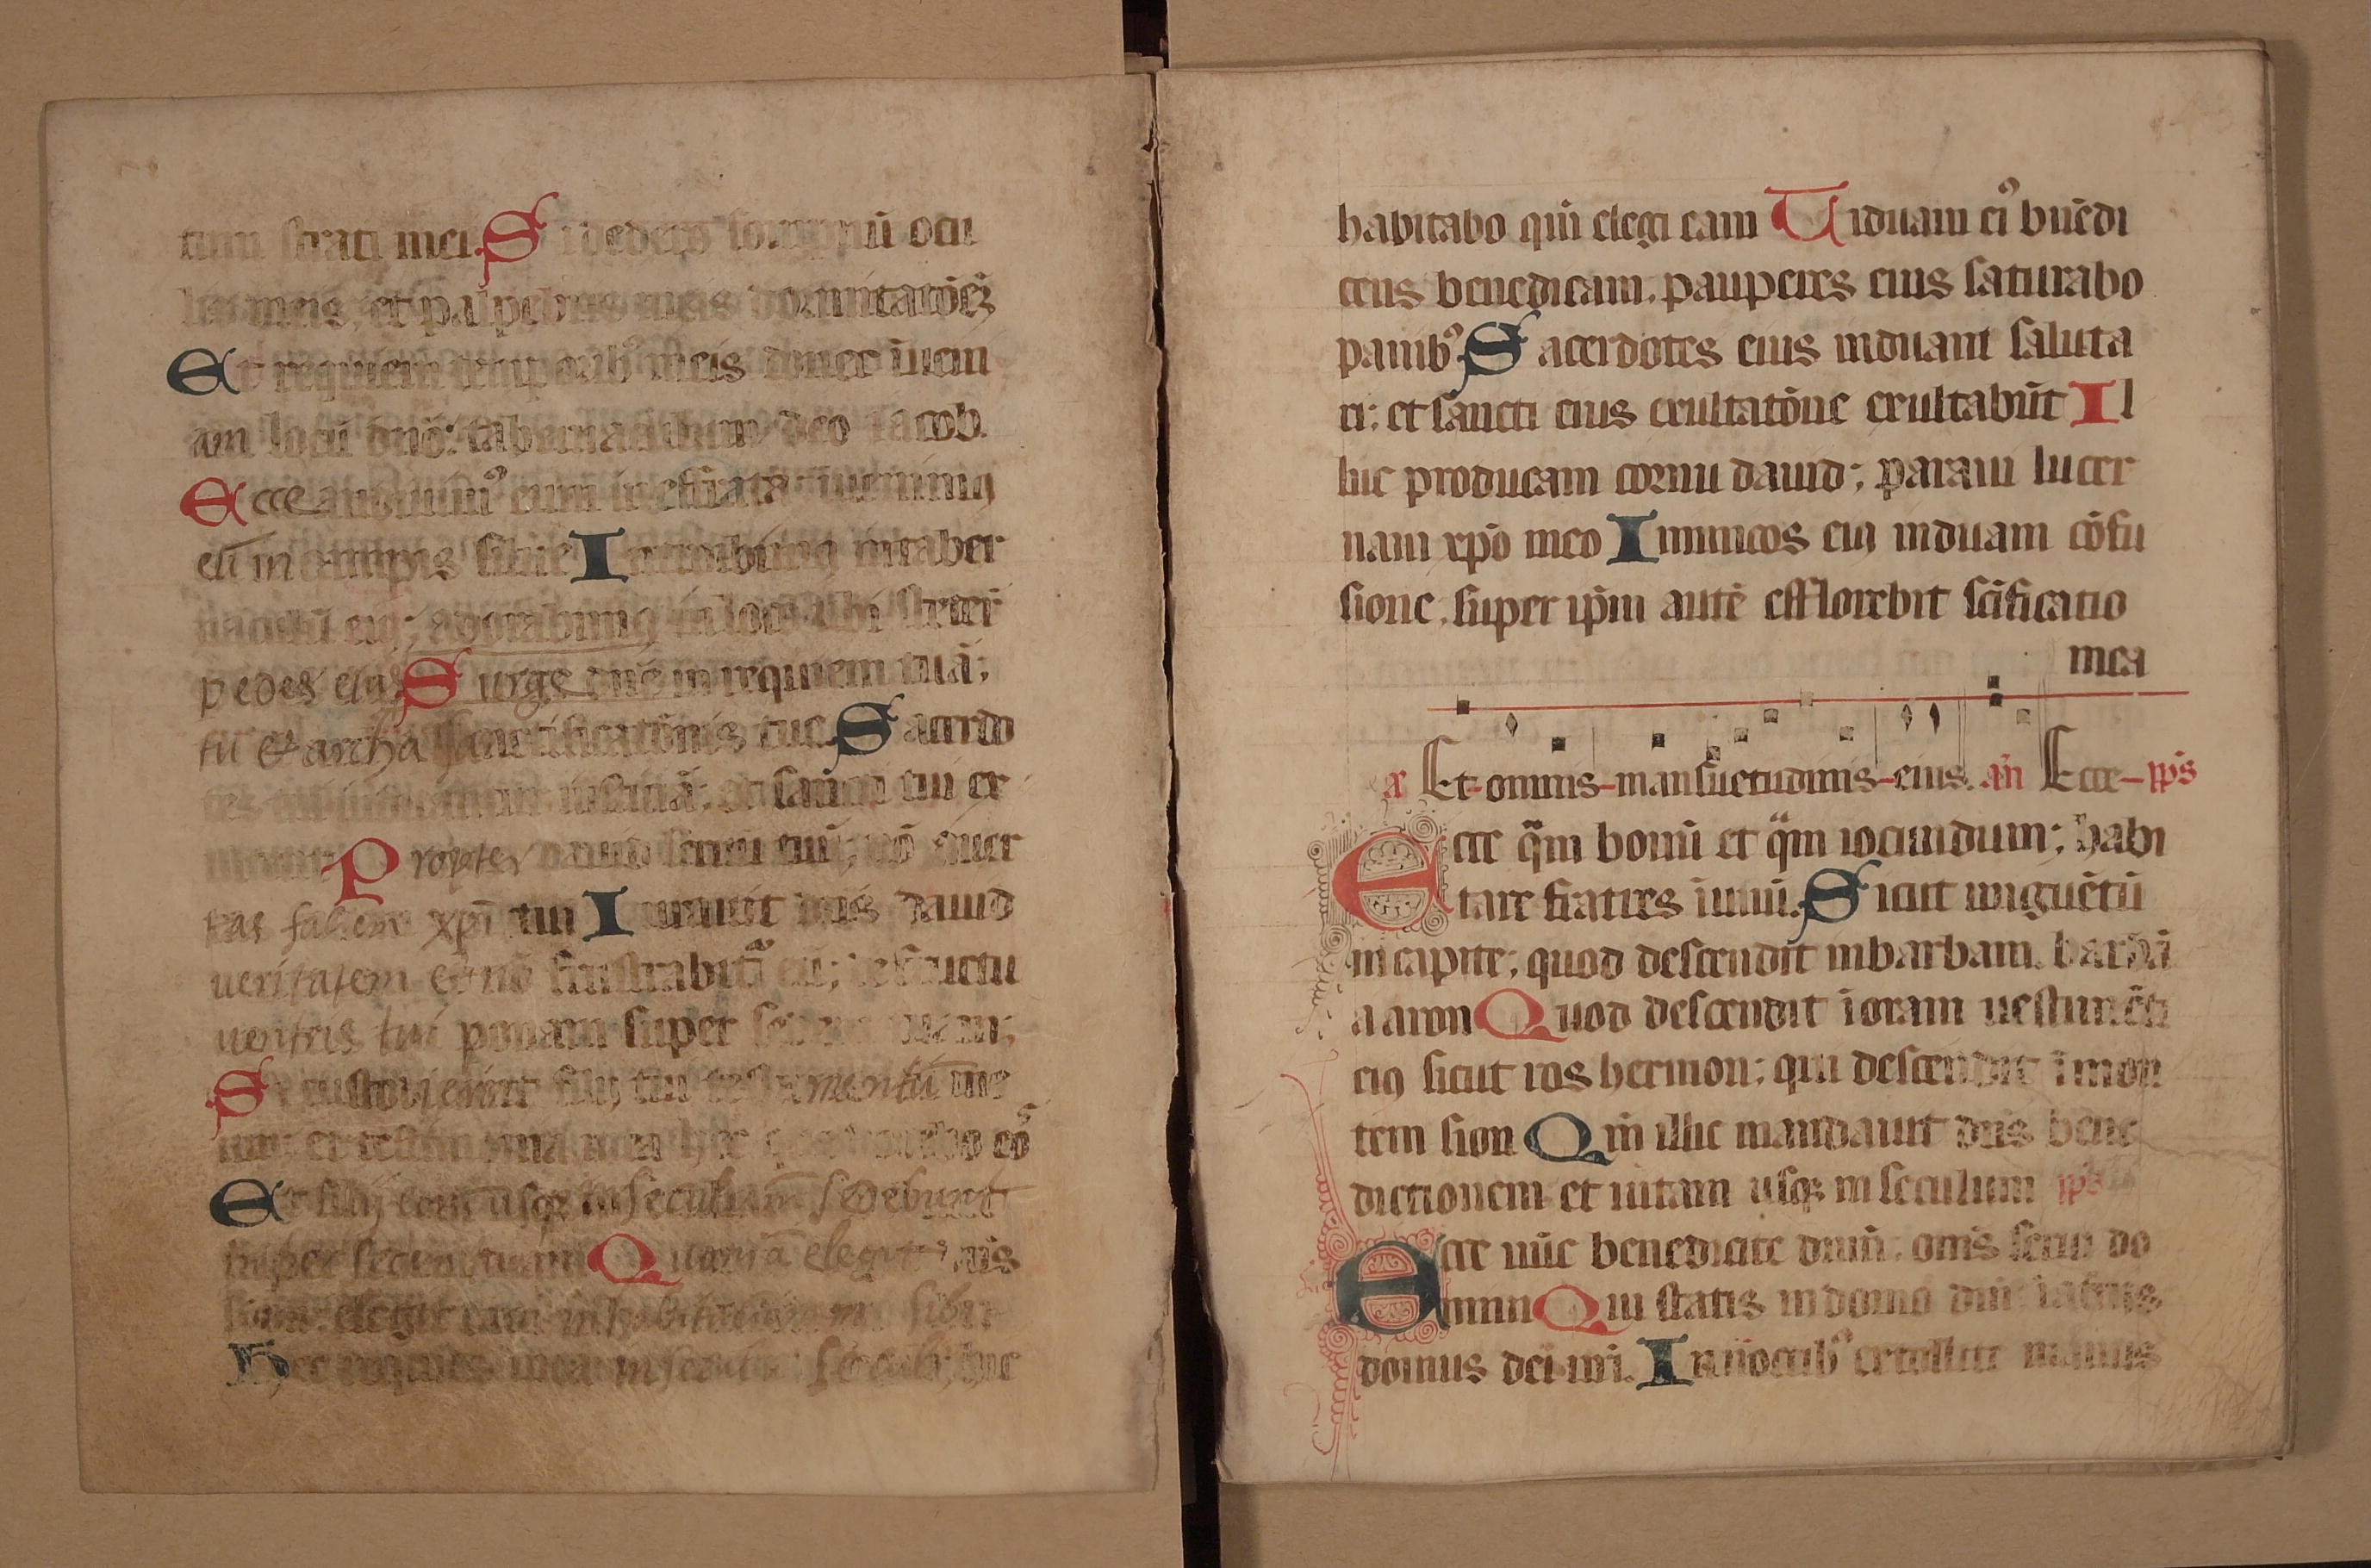 tum strati mei. Si dedero sompnū ocu
lis meis, et palpebris meis dormitatōeȝ
Et requiem temporibꝰ meis donec īueni
am locū dnō: tabernaculum deo Iacob.
Ecce audiuimꝰ eum in effrata: īuenimꝯ
eū in campis silue Introibimꝯ in taber
naculū eiꝯ; adorabimꝯ in loco ubi steter̄
pedes eiꝯ Surge dn̄e in requiem tuā;
tu et archa sanctificatōnis tue. Sacerdo
tes tui induantur iusticiā: et sancti tui ex
Propter dauid seruū tuū; nō auer
tas faciem xpī tui Iurauit dn̄s dauid
veritatem et nō frustrabitᷣ eū; de fructu
uentris tui ponam super sedem tuam;
Si custodierint filij tui testamentū me
um et testimonia mea hec que docebo eos
Et filij eorum usqꝫ in seculum sedebunt
super sedem tuam Quoniā elegit dn̄s
sion: elegit eam in habitationem sibi
Hec requies mea in seculum seculi; hic
habitabo qm̄ elegi eam Uiduam eiꝰ bn̄edi
cens benedicam. pauperes eius saturabo
panibꝰ Sacerdotes eius induam saluta
ri: et sancti eius exultatōne exultabūt Il
luc producam cornu dauid; paraui lucer
nam xp̄o meo Inimicos eiꝯ induam cōfu
sione, super ip̄m autē efflorebit sc̄ificatio
mea
Et omnis mansuetudinis eius. an̄ Ecce ps̄
Ecce qᷓm bonū et qᷓm iocundum; habi
tare fratres ī unū. Sicut unguētū
in capite; quod descendit in barbam. barbā
aaron Quod descendit ī oram uestimēti
eiꝯ sicut ros hermon; qui descendit ī mon
tem sion Qm̄ illic mandauit dn̄s bene
dictionem et uitam usqꝫ in seculum ps̄
Ecce nūc benedicite dn̄m; om̄s serui do
mini Qui statis in domo dn̄i: ī atriis
domus dei nr̄i. In noctibꝰ extollite manus